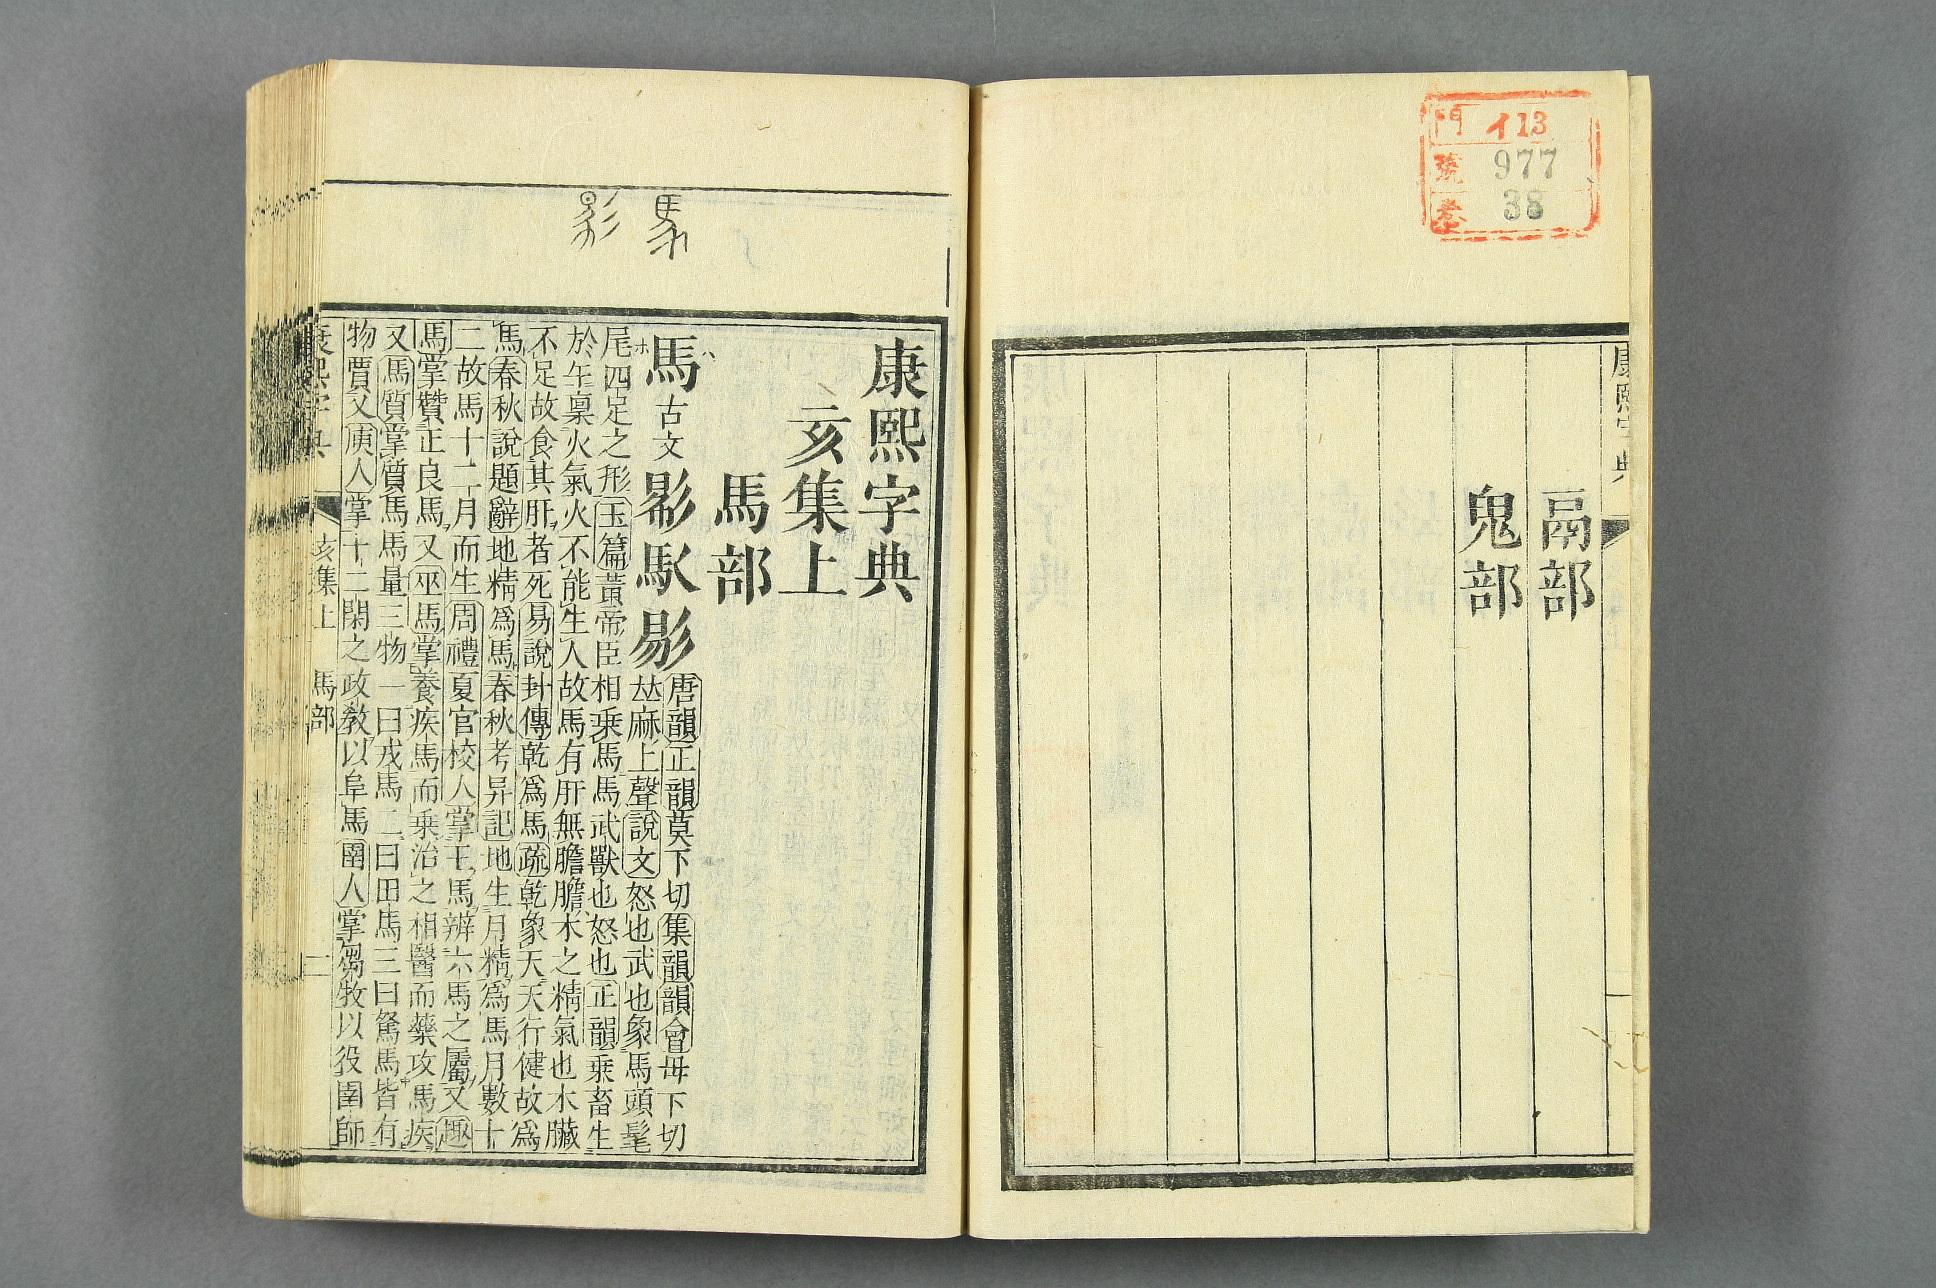 門 イ13
號 977
卷 38
康熙字典
鬲部
鬼部
康熙字典
亥集上
馬部
馬 古文 影 𩡧 𢒠 唐韻正韻莫下切集韻韻會母下切
𠀤麻上聲說文怒也武也象馬頭髦
尾四足之形玉篇黃帝臣相乗馬馬武獸也怒也正韻乗畜生
於午稟火氣火不能生人故馬有肝無膽膽木之精氣也木臟
不足故食其肝者死易說卦傳乾爲馬疏乾象天天行健故爲
馬春秋說題辭地精爲馬春秋考异記地生月精爲馬月數十
二故馬十二月而生周禮夏官校人掌王馬辨六馬之屬又趣
馬掌贊正良馬又巫馬掌養疾馬而乗治之相醫而藥攻馬疾
又馬質掌質馬馬量三物一曰戎馬二曰田馬三曰駑馬皆有
物賈又庾人掌十二閑之政敎以阜馬圉人掌芻牧以役圉師
康熙字典 亥集上 馬部 二